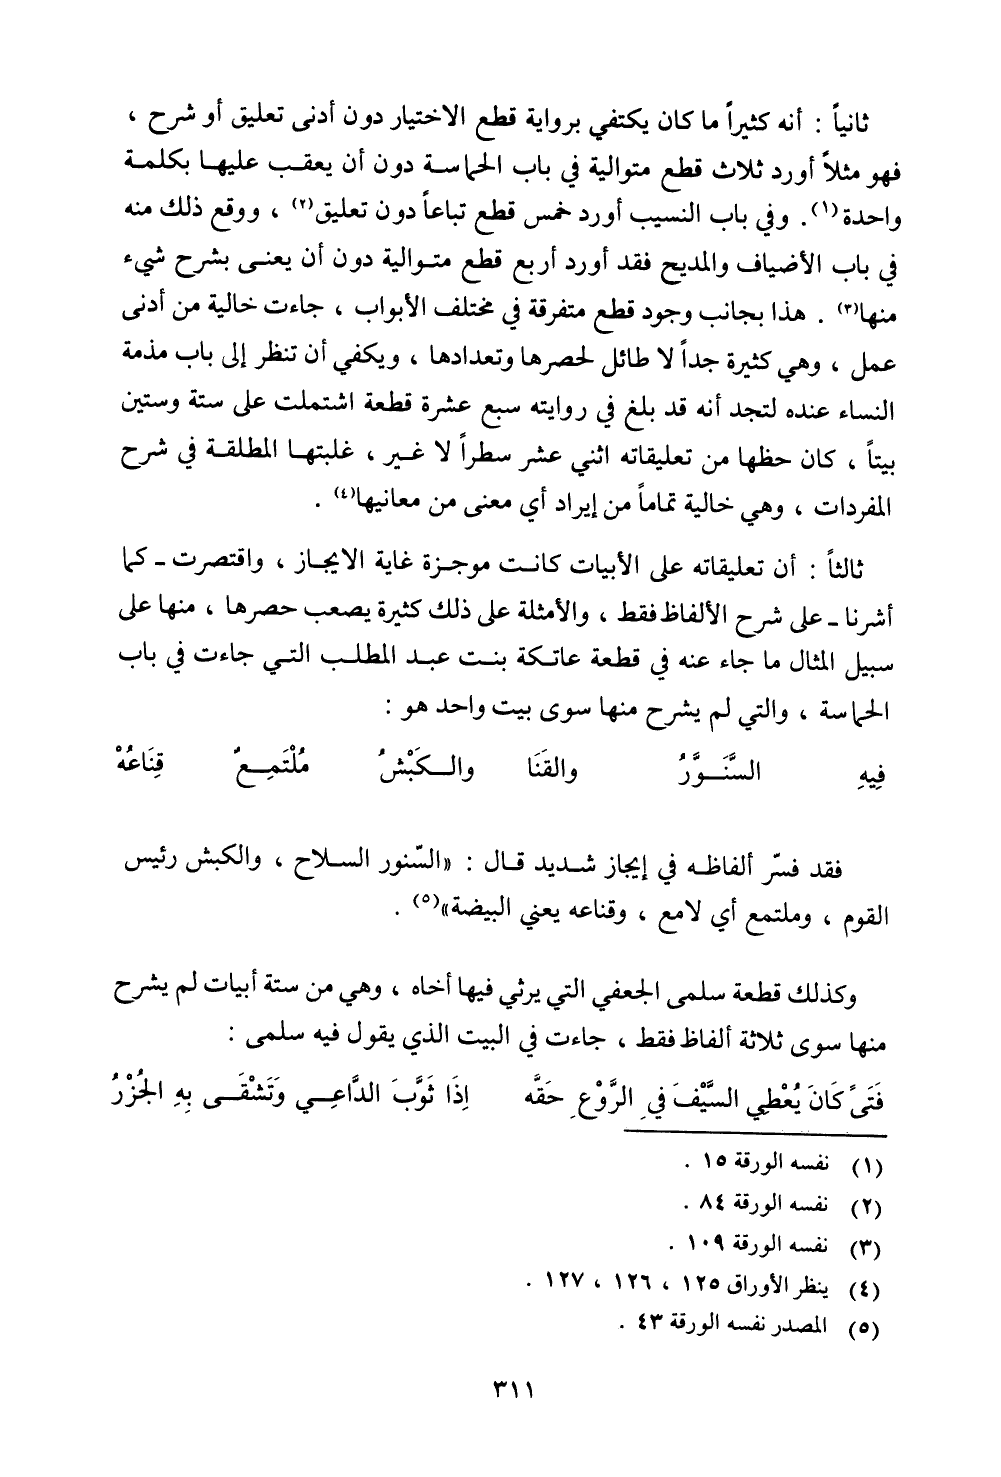 ثانياً : أنه كثيراً ما كان يكتفي برواية قطع الاختيار دون أدنى تعليق أو شرح ،
فهو مثلاً أورد ثلاث قطع متوالية في باب الحماسة دون أن يعقب عليها بكلمة
واحدة(١). وفي باب النسيب أورد خمس قطع تباعاً دون تعليق(٢) ، ووقع ذلك منه
في باب الأضياف والمديح فقد أورد أربع قطع متوالية دون أن يعنى بشرح شيء
منها(٣) . هذا بجانب وجود قطع متفرقة في مختلف الأبواب ، جاءت خالية من أدنى
عمل ، وهي كثيرة جداً لا طائل لحصرها وتعدادها ، ويكفي أن تنظر إلى باب مذمة
النساء عنده لتجد أنه قد بلغ في روايته سبع عشرة قطعة اشتملت على ستة وستين
بيتاً ، كان حظها من تعليقاته اثني عشر سطراً لا غير ، غلبتها المطلقة في شرح
المفردات ، وهي خالية تماماً من إيراد أي معنى من معانيها(٤) .
ثالثاً : أن تعليقاته على الأبيات كانت موجزة غاية الايجاز ، واقتصرت ـ كما
أشرنا ـ على شرح الألفاظ فقط ، والأمثلة على ذلك كثيرة يصعب حصرها ، منها على
سبيل المثال ما جاء عنه في قطعة عاتكة بنت عبد المطلب التي جاءت في باب
الحماسة ، والتي لم يشرح منها سوى بيت واحد هو :
فِيهِ السَّنَوَّرُ والقَنَا والكَبْشُ مُلْتَمِعٌ قِنَاعُهْ
فقد فسّر ألفاظه في إيجاز شديد قال : «السّنور السلاح ، والكبش رئيس
القوم ، وملتمع أي لامع ، وقناعه يعني البيضة»(٥) .
وكذلك قطعة سلمى الجعفي التي يرثي فيها أخاه ، وهي من ستة أبيات لم يشرح
منها سوى ثلاثة ألفاظ فقط ، جاءت في البيت الذي يقول فيه سلمى :
فَتَىً كَانَ يُعْطِي السَّيْفَ فِي الرَّوْعِ حَقَّه إذَا ثَوَّبَ الدَّاعِي وَتَشْقَى بِهِ الجُزْرُ
(١) نفسه الورقة ١٥ .
(٢) نفسه الورقة ٨٤ .
(٣) نفسه الورقة ١٠٩ .
(٤) ينظر الأوراق ١٢٥ ، ١٢٦ ، ١٢٧ .
(٥) المصدر نفسه الورقة ٤٣ .
٣١١